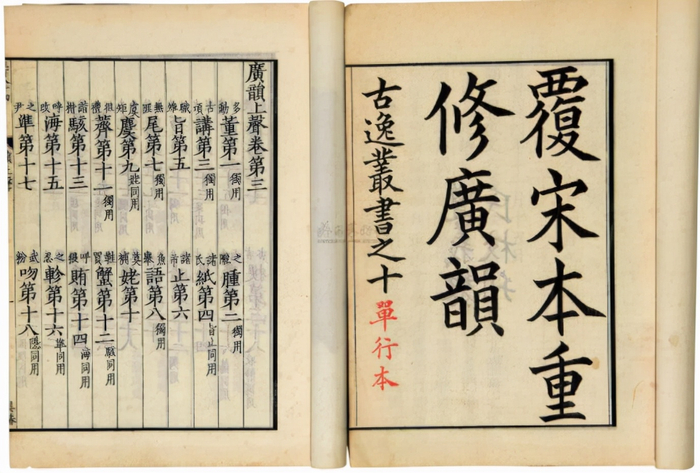 覆宋本重
修廣韻
古逸叢書之十 單行本
廣韻上聲卷第三
多動董第一獨用 之隴腫第二獨用
古項講第三獨用 諸氏紙第四旨止同用
職雉旨第五 諸市止第六
無匪尾第七獨用 魚舉語第八獨用
虞矩麌第九姥同用 莫補姥第十
徂禮薺第十一獨用 鞋買蟹第十二駭同用
諧楷駭第十三 呼猥賄第十四海同用
呼改海第十五 之忍軫第十六準同用
之尹準第十七 武粉吻第十八隱同用